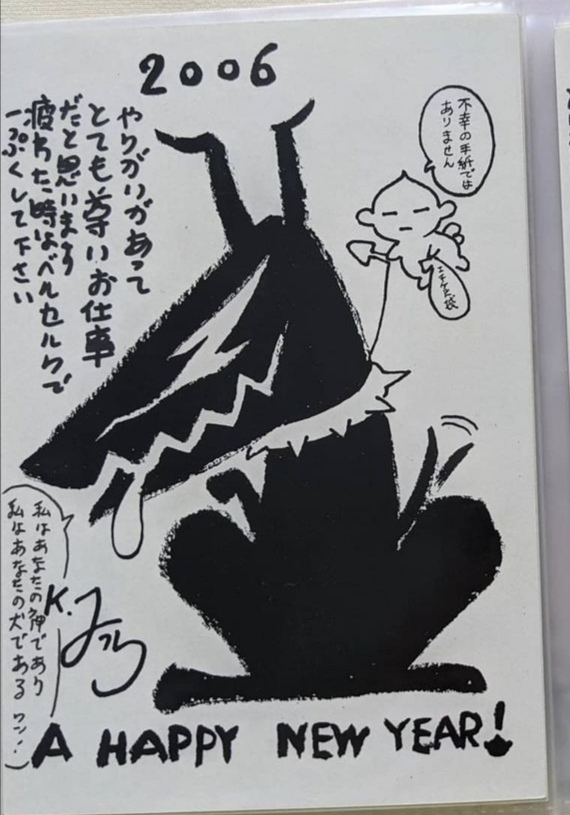 2006
やりがいがあって
とても尊いお仕事
だと思います
疲れた時はベルセルクで
一ぷくして下さい
不幸の手紙では
ありません
エチケット袋
私はあなたの神であり
私はあなたの犬である ワン!
K.
A HAPPY NEW YEAR!